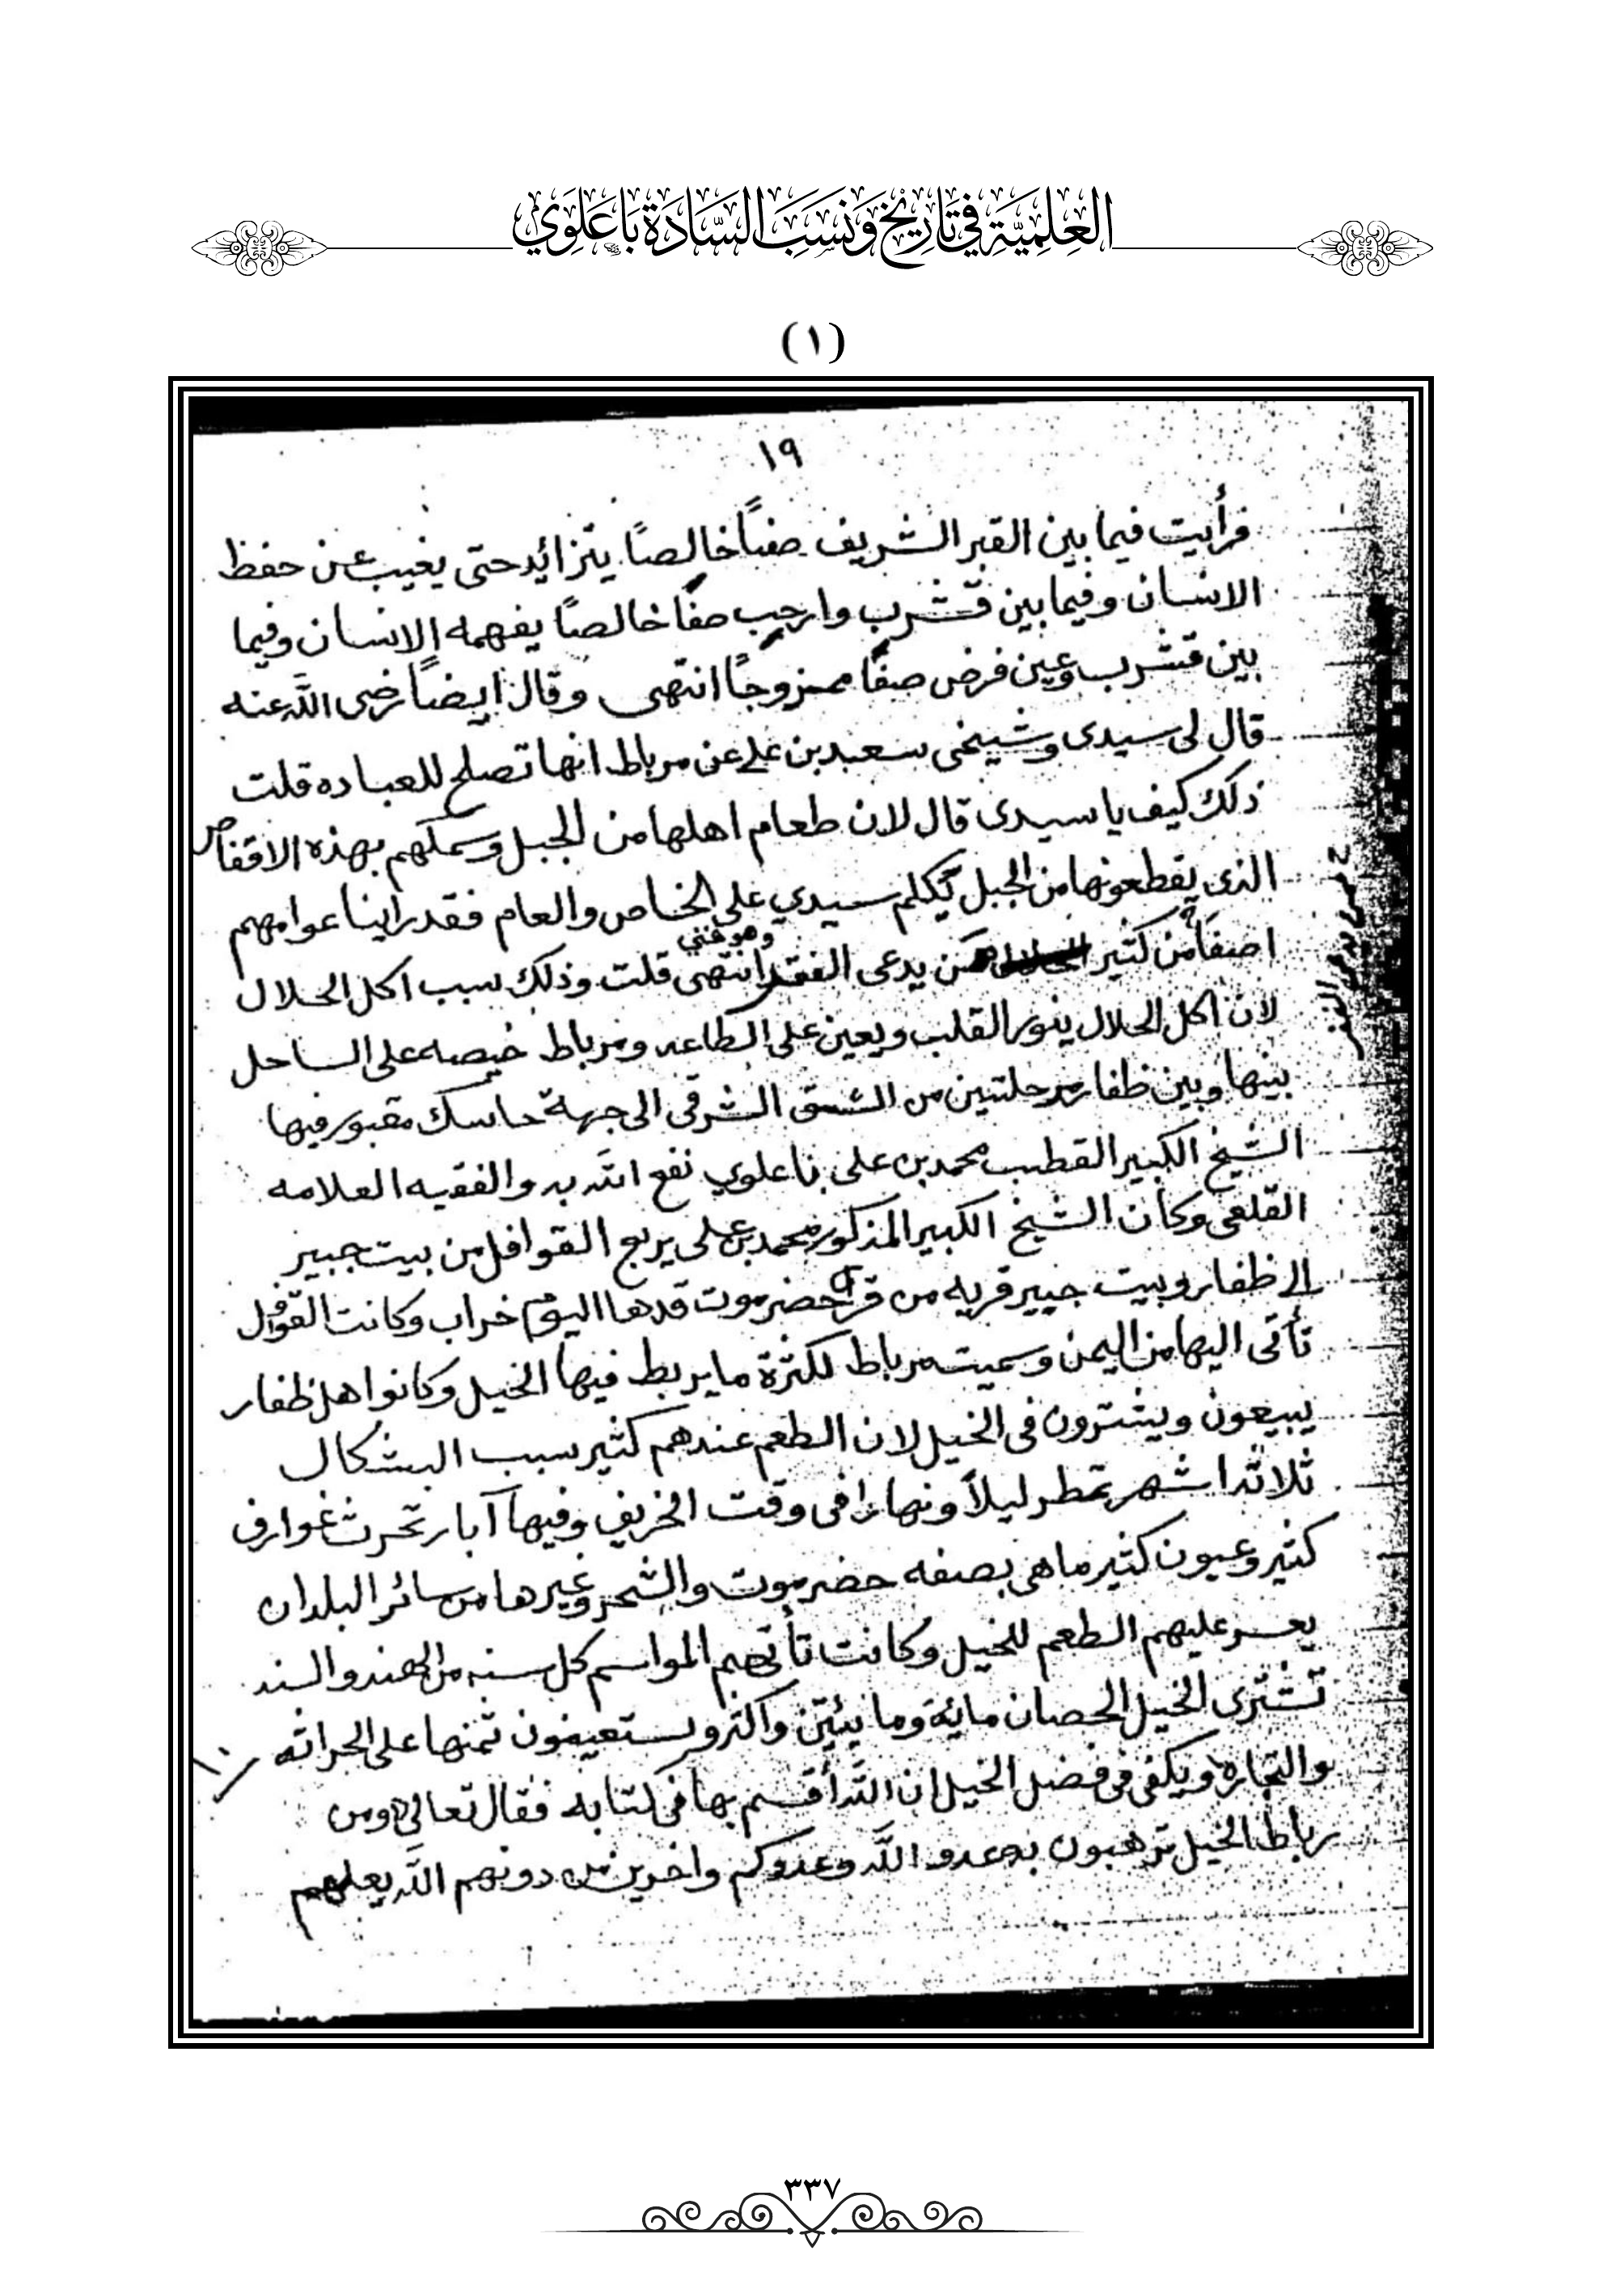 العِلمِيَّة فِي تَارِيخ وَنَسَبِ السَّادَة بَاعَلَوِي
(١)
١٩
فرأيت فيما بين القبر الشريف صفاً خالصاً يتزائد حتى يغيب عن حفظ
الانسان وفيما بين قشرب وارجب صفاً خالصاً يفهمه الانسان وفيما
بين قشرب وعين فرض صفاً ممزوجاً انتهى وقال ايضاً رضى الله عنه
قال لى سيدى وشيخى سعيد بن على عن مرباط انها تصلح للعباده قلت
ذلك كيف يا سيدى قال لان طعام اهلها من الجبل وسمكهم بهذه الاقفاص
الذى يقطعونها من الجبل يكلم سيدي على الخاص والعام فقد راينا عوامهم
اصفا من كثير ممن يدعى الفقر انتهى وهو غني قلت وذلك سبب اكل الحلال
لان اكل الحلال ينور القلب ويعين على الطاعه ومرباط خيصه على الساحل
بينها وبين ظفار مرحلتين من الشق الشرقى الى جهة حاسك مقبور فيها
الشيخ الكبير القطب محمد بن على باعلوي نفع الله به والفقيه العلامه
القلعى وكان الشيخ الكبير المذكور محمد بن على يربع القوافل من بيت جبير
الى ظفار وبيت جبير قريه من قرى حضرموت قدها اليوم خراب وكانت القوافل
تأتى اليها من اليمن وسميت مرباط لكثرة ما يربط فيها الخيل وكانوا اهل ظفار
يبيعون ويشترون فى الخيل لان الطعم عندهم كثير سبب البشكال
ثلاثة اشهر تمطر ليلاً ونهاراً فى وقت الخريف وفيها آبار تحرث غوارف
كثير وعيون كثير ما هى بصفه حضرموت والشحر وغيرها من سائر البلدان
يعسر عليهم الطعم للخيل وكانت تأتيهم المواسم كل سنه من الهند والسند
تشترى الخيل الحصان مائة ومايئتين واكثر ويستعينون ثمنها على الحراثه
والتجاره ويكفى فى فضل الخيل ان الله أقسم بها فى كتابه فقال تعالى ومن
رباط الخيل ترهبون به عدو الله وعدوكم واخرين من دونهم الله يعلمهم
٣٣٧